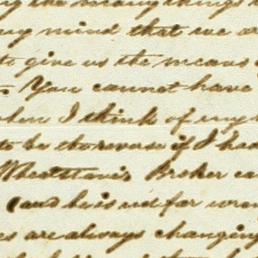 the many things
my mind that we a
to give us the means
You cannot have
when I think of my
to be the reverse if I had
Wheatstone's Broker ca
(and he is not far wron
es are always changing